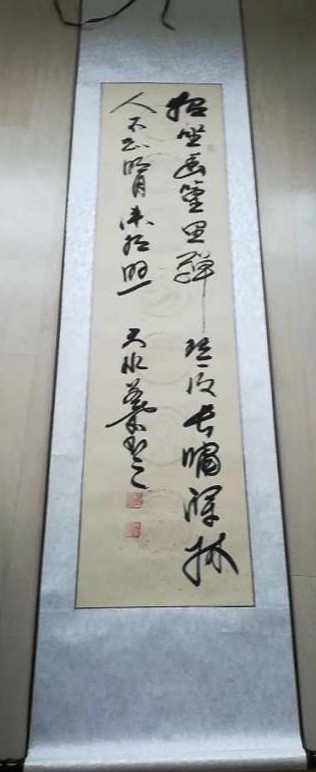 獨坐幽篁里彈琴復長嘯深林
人不知明月来相照 天水